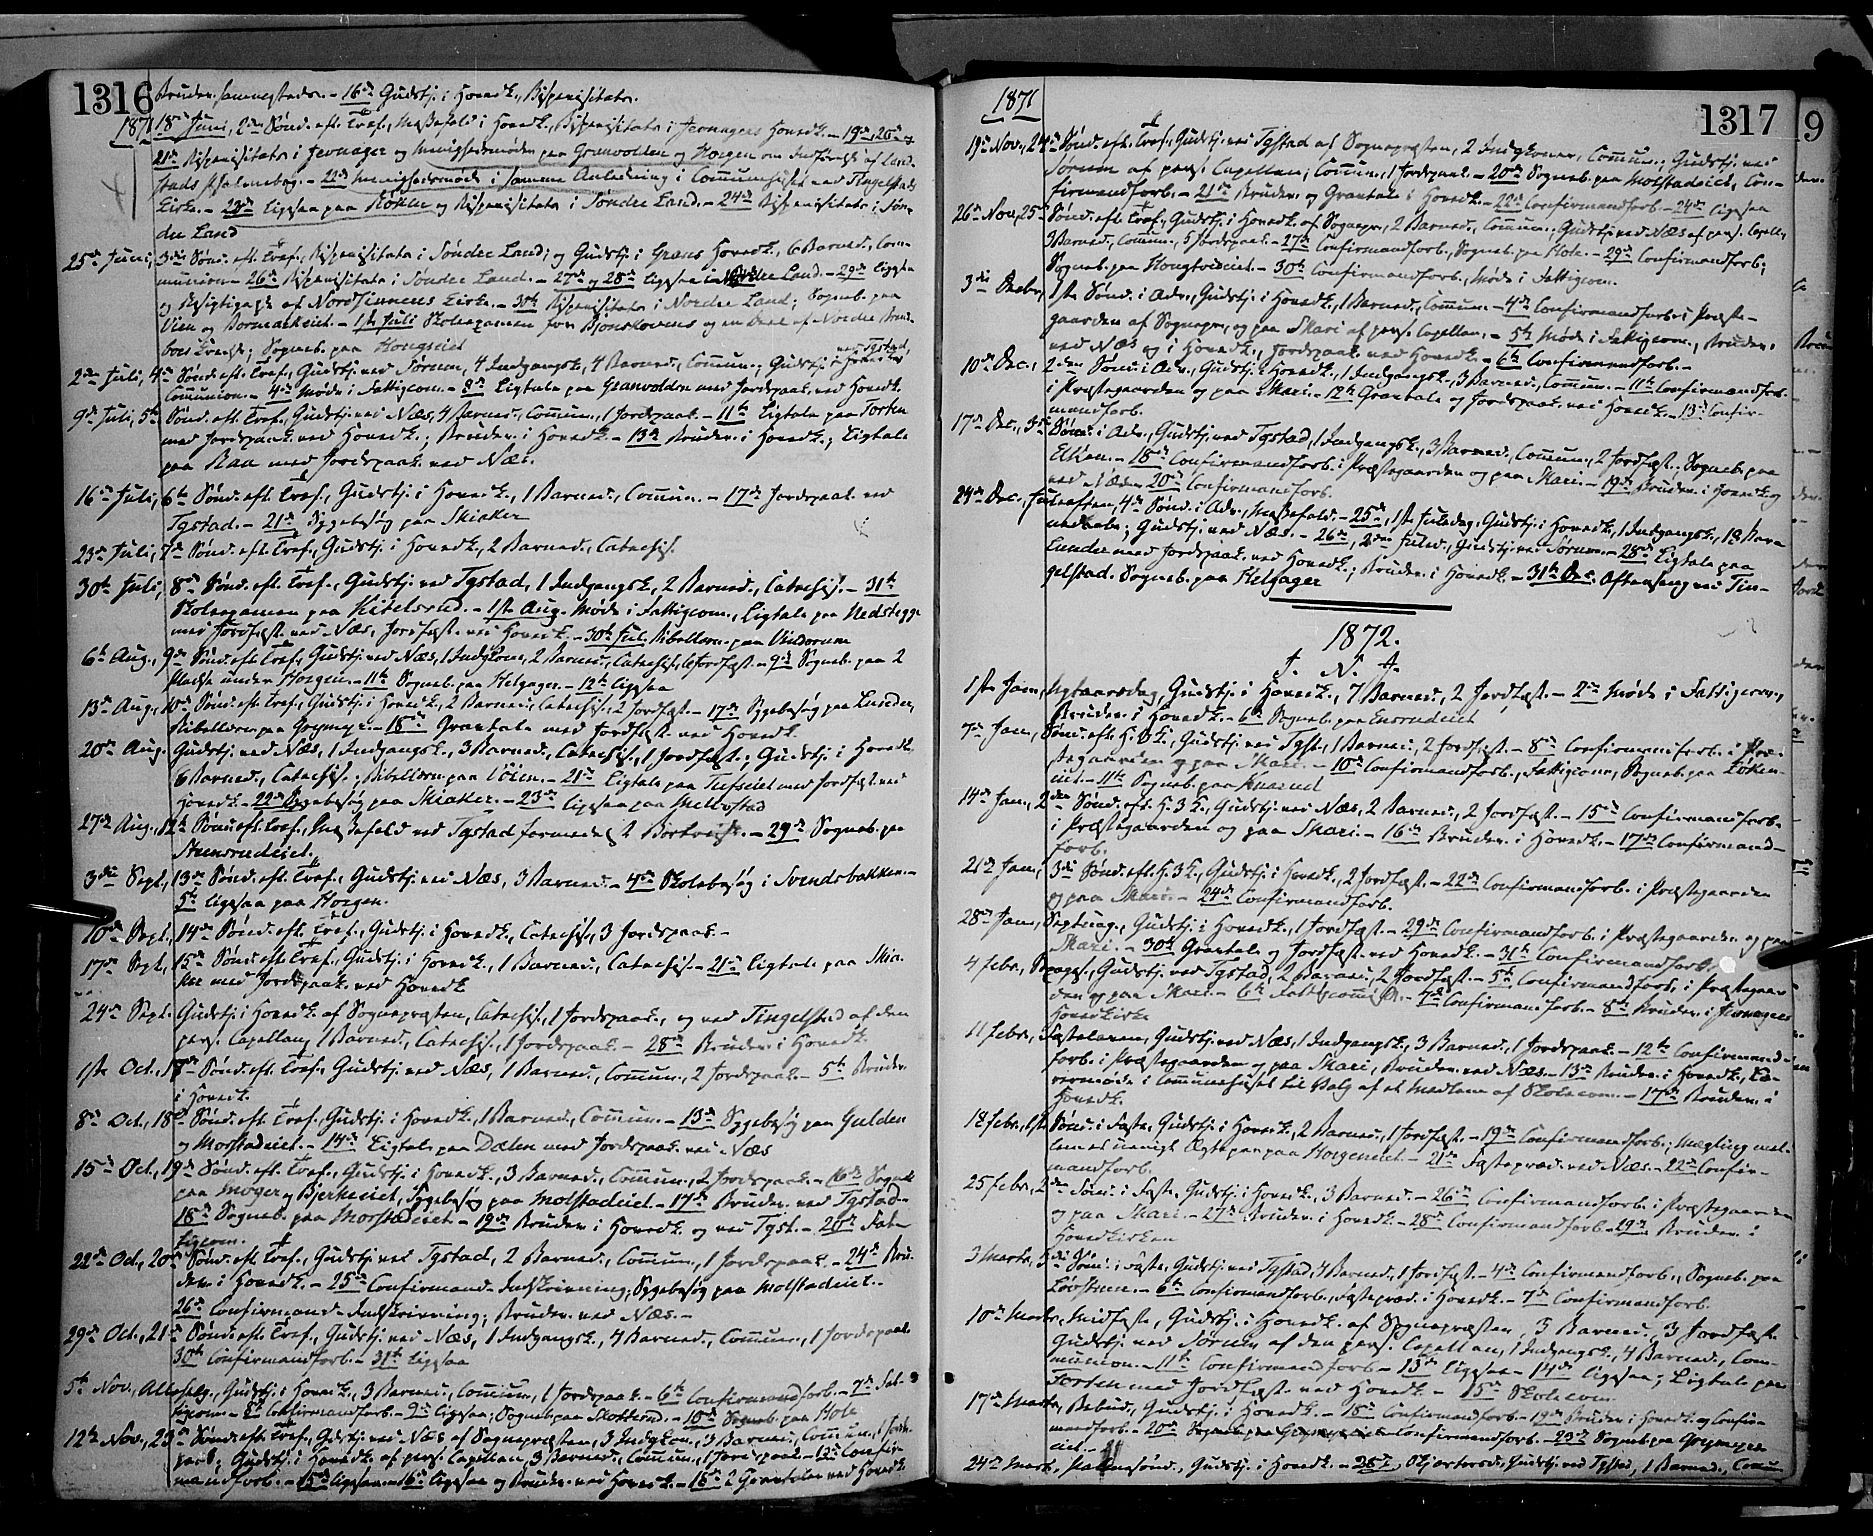 1316
Bruder. sammesteds. - 16de Gudstj. i Hovedk., Bispevisitats.
1871 18de Juni, 2den Sønd. eft. Tref., Messefald i Hovedk., Bispevisitats i Jevnagers Hovedk. - 19de, 20de og
21de Bispevisitats i Jevnager og Menighedsmøde paa Granvolden og Horgen om Indførelse af Land-
stads Psalmebog. - 22de Menighedsmøde i samme Anledning i Communehuset ved Tingelstads
Kirke. - 23de ligesaa paa og Bispevisitats i Søndre Land. - 24de Bispevisitats i Søn-
dre Land
25de Juni, 3die Sønd. eft. Tref., Bispevisitats i Søndre Land; og Gudstj. i Grans Hovedk., 6 Barned., Com-
munion. - 26de Bispevisitats i Søndre Land. - 27de og 28de ligesaa i Land. - 29de ligesaa
og Besigtigelse af Nordsinnens Kirke. - 30te Bispevisitats i Nordre Land; Sogneb. paa
Vien og - 1ste Juli Skoleexamen for Bjonskovens og en Deel af Nordre
Kreds; Sogneb. paa Hongseiet
2den Juli, 4de Sønd. eft. Tref., Gudstj. ved Sørum, 4 Indgangsk., 4 Barned., Commun.; Gudstj. ved Tgstad,
Communion. - 4de Møde i Fattigcom. - 8de Ligtale paa Granvolden med Jordpaak. ved Hovedk.
9de Juli, 5te Sønd. eft. Tref., Gudstj. ved Næs, 4 Barned., Commun., 1 Jordpaak. - 11te Ligtale paa Torten
med Jordpaak. ved Hovedk.; Bruder. i Hovedk. - 13de Bruder. i Hovedk.; Ligtale
paa Raa med Jordpaak. ved Næs.
16de Juli, 6te Sønd. eft. Tref., Gudstj. i Hovedk., 1 Barned., Commun. - 17de Jordpaak. ved
Tgstad. - 21de Sygebesøg paa Skiaker
23de Juli, 7de Sønd. eft. Tref., Gudstj. i Hovedk., 2 Barned., Catechis.
30te Juli, 8de Sønd. eft. Tref., Gudstj. ved Tgstad, 1 Indgangsk., 2 Barned., Catechis. - 31te
Skoleexamen paa Kitelsrud. - 1ste Aug. Møde i Fattigcom., Ligtale paa
med Jordfæst. ved Næs, Jordfæst. ved Hovedk. - 30te Juli Bibellæsn. paa Vindorum
6te Aug., 9de Sønd. eft. Tref., Gudstj. ved Næs, 1 Indgkone, 2 Barned., Catechis., 1 Jordfæst. - 9de Sogneb. paa 2
Pladse under Horgen. - 11te Sogneb. paa Helgager. - 12te ligesaa
13de Aug., 10de Sønd. eft. Tref., Gudstj. i Hovedk., 2 Barned., Catechis., 2 Jordfæst. - 17de Sygebesøg paa Lunden,
Bibellæsn. paa Gregmyr. - 18de Gravtale med Jordfæst. ved Hovedk.
20de Aug. Gudstj. ved Næs, 1 Indgangsk., 3 Barned., Catechis., 1 Jordfæst.; Gudstj. i Hovedk.
6 Barned., Catechis.; Bibellæsn. paa Vøien. - 21de Ligtale paa Tufseiet med Jordfæst. ved
Hovedk. - 22de Sygebesøg paa Skiaker. - 23de ligesaa paa
27de Aug., 12te Sønd. eft. Tref., Messefald ved Tgstad formedelst Bortreise. - 29de Sogneb. paa
Steensrudeiet.
3die Sept., 13de Sønd. eft. Tref., Gudstj. ved Næs, 3 Barned. - 4de Skolebesøg i Svendsbakken. -
5te ligesaa paa Horgen.
10de Sept., 14de Sønd. eft. Tref., Gudstj. i Hovedk., Catechis., 3 Jordspaak. -
17de Sept., 15de Sønd. eft. Tref., Gudstj. i Hovedk., 1 Barned., Catechis. - 21de Ligtale paa Skia-
ker med Jordpaak. ved Hovedk
24de Sept. Gudstj. i Hovedk. af Sognepræsten, Catechis., 1 Jordspaak., og ved Tingelstad af den
pers. Capellan, 1 Barned., Catechis., 1 Jordspaak. - 28de Bruder. i Hovedk.
1ste Oct., 17de Sønd. eft. Tref., Gudstj. ved Næs, 1 Barned., Commun., 2 Jordspaak. - 5te Bruder.
i Hovedk.
8de Oct., 18de Sønd. eft. Tref., Gudstj. i Hovedk., 1 Barned., Commun. - 13de Sygebesøg paa Gulden
og Morstadeiet. - 14de Ligtale paa Dælen med Jordspaak. ved Næs
15de Oct., 19de Sønd. eft. Tref., Gudstj. i Hovedk., 3 Barned., Commun., 2 Jordspaak. - 16de Sogneb.
paa Moger og Bjerkeeiet, Sygebesøg paa Molstadeiet. - 17de Bruder. ved Tgstad. -
18de Sogneb. paa Morstadeiet. - 19de Bruder. i Hovedk. og ved Tgst. - 20de Fat-
tigcom.
22de Oct., 20de Sønd. eft. Tref., Gudstj. ved Tgstad, 2 Barned., Commun., 1 Jordspaak. - 24de Bru-
der. i Hovedk. - 25de Confirmand-Indskrivning; Sygebesøg paa Molstadeiet. -
26de Confirmand-Indskrivning; Bruder. ved Næs. -
29de Oct., 21de Sønd. eft. Tref., Gudstj. ved Næs, 1 Indgangsk., 4 Barned., Commun., 1 Jordspaak.
30te Confirmandforb. - 31te ligesaa
5te Nov., Allehelg., Gudstj. i Hovedk., 3 Barned., Commun., 1 Jordspaak. - 6te Confirmandforb. - 7de Fat-
tigcom. - 8de Confirmandforb. - 9de ligesaa; Sogneb. paa - 10de Sogneb. paa Hole
12te Nov., 23de Sønd. eft. Tref., Gudstj. ved Næs af Sognepræsten, 3 Indgkon., 3 Barned., Commun., 1 Jord-
paak; Gudstj. i Hovedk. af pers. Capellan, 3 Barned., Commun., 1 Jordspaak. - 13de Confir-
mandforb. - 15de ligesaa - 16de ligesaa og Bruder. ved Hovedk. - 18de 2 Gravtaler ved Hovedk.
1871
1317
19de Nov., 24de Sønd. eft. Tref., Gudstj. ved Tgstad af Sognepræsten, 2 Indgkoner, Commun.; Gudstj. ved
Sørum af pers. Capellan, Commun., 1 Jordspaak. - 20de Sogneb. paa Molstadeiet, Con-
firmandforb. - 21de Bruder. og Gravtale i Hovedk. - 22de Confirmandforb. - 24de ligesaa
26de Nov., 25de Sønd. eft. Tref., Gudstj. i Hovedk. af Sognepr., 2 Barned., Commun., Gudstj. ved Næs af pers. Capell.,
3 Barned., Commun., 5 Jordspaak. - 27de Confirmandforb., Sogneb. paa Hole. - 29de Confirmandforb.;
Sogneb. paa Hongtveiteiet. - 30te Confirmandforb., Møde i Fattigcom.
3die Decbr., 1ste Sønd. i Adv., Gudstj. i Hovedk., 1 Barned., Commun. - 4de Confirmandforb. i Præste-
gaarden af Sognepr., og paa Skari af pers. Capellan. - 5te Møde i Fattigcom., Bruder.
ved Næs og i Hovedk., Jordspaak. ved Hovedk. - 6te Confirmandforb. -
10de Dec., 2den Sønd. i Adv., Gudstj. i Hovedk., 1 Indgangsk., 3 Barned., Commun. - 11te Confirmandforb.
i Præstegaarden og paa Skari. - 12te Gravtale og Jordspaak. ved Hovedk. - 13de Confir-
mandforb.
17de Dec., 3die Sønd. i Adv., Gudstj. ved Tgstad, 1 Indgangsk., 3 Barned., Commun., 2 Jordfæst. Sogneb. paa
Elken. - 18de Confirmandforb. i Præstegaarden og paa Skari. - 19de Bruder. i Hovedk. og
ved Næs. - 20de Confirmandforb.
24de Dec., Juleaften, 4de Sønd. i Adv., Messefald. - 25de, 1ste Juledag, Gudstj. i Hovedk., 1 Indgangsk., 18 Bar-
nedaab; Gudstj. ved Næs. - 26de, 2den Juled., Gudstj. ved Sørum. - 28de Ligtale paa
Lunder med Jordspaak. ved Hovedk.; Bruder. i Hovedk. - 31te Dec. Aftensang ved Tin-
gelstad. Sogneb. paa Helgager
1872.
J. N. J.
1ste Jan., Nytaarsdag, Gudstj. i Hovedk., 7 Barned., 2 Jordfæst. - 2den Møde i Fattigcom.,
Bruder. i Hovedk. - 6te Sogneb. paa Ensrudeiet
7de Jan., Sønd. eft. H. 3 K., Gudstj. ved Tgst., 1 Barned., 2 Jordfæst. - 8de Confirmandforb. i Præ-
stegaarden og paa Skari. - 10de Confirmandforb., Fattigcom., Sogneb. paa Løken-
eiet. - 11te Sogneb. paa Knarud
14de Jan., 2den Sønd. eft. H. 3 K., Gudstj. ved Næs, 2 Barned., 2 Jordfæst. - 15de Confirmandforb.
i Præstegaarden og paa Skari. - 16de Bruder. i Hovedk. - 17de Confirmand-
forb.
21de Jan., 3die Sønd. eft. H. 3 K., Gudstj. i Hovedk., 2 Jordfæst. - 22de Confirmandforb. i Præstegaarden
og paa Skari. - 24de Confirmandforb.
28de Jan., Septuag., Gudstj. i Hovedk., 1 Jordfæst. - 29de Confirmandforb. i Præstegaarden og paa
Skari. - 30te Gravtale og Jordfæst. ved Hovedk. - 31te Confirmandforb.
4 Febr., Sexages., Gudstj. ved Tgstad, 2 Barned., 2 Jordfæst. - 5te Confirmandforb. i Præstegaar-
den og paa Skari. - 6te Fattigcommis. - 7de Confirmandforb. - 8de Bruder. i Jevnagers
Hovedkirke
11 Febr., Fastelavn, Gudstj. ved Næs, 1 Indgangsk., 3 Barned., 1 Jordspaak. - 12te Confirmand-
forb. i Præstegaarden og paa Skari, Bruder. ved Næs. - 13de Bruder. i Hovedk., Læ-
rermøde i Communehuset til Valg af et Medlem af Skolecom. - 17de Bruder. i
Hovedk.
18 Febr., 1ste Sønd. i Faste, Gudstj. i Hovedk., 2 Barned., 1 Jordfæst. - 19de Confirmandforb.; Mægling mel-
lem et uenigt Ægtepar paa Horgeneiet. - 21de Fastepræd. ved Næs. - 22de Confir-
mandforb.
25 Febr., 2den Sønd. i Faste, Gudstj. i Hovedk., 3 Barned. - 26de Confirmandforb. i Præstegaarden
og paa Skari. - 27de Bruder. i Hovedk. - 28de Confirmandforb. - 29de Bruder. i
Hovedkirken
3 Marts, 3die Sønd. i Faste, Gudstj. ved Tgstad, 4 Barned., 1 Jordfæst. - 4de Confirmandforb., Sogneb. paa
- 6te Confirmandforb., Fastepræd. i Hovedk. - 7de Confirmandforb.
10de Marts, Midfaste, Gudstj. i Hovedk. af Sognepræsten, 3 Barned., 3 Jordfæst.
Gudstj. ved Sørum af den pers. Capellan, 1 Indgangsk., 4 Barned., Com-
munion. - 11te Confirmandforb. - 13de ligesaa - 14de ligesaa; Ligtale paa
Torten med Jordfæst. ved Hovedk. - 15de Skolecom.
17de Marts, Bebud., Gudstj. i Hovedk. - 18de Confirmandforb. - 19de Bruder. i Hovedk. og Confir-
mandforb. - 20de Confirmandforb. - 23de Sogneb. paa Gregmyr-
eiet. -
24de Marts, Palmesønd., Gudstj. i Hovedk. - 28de, Skjærtorsd., Gudstj. ved Tgstad, 1 Barned., Comun.
9